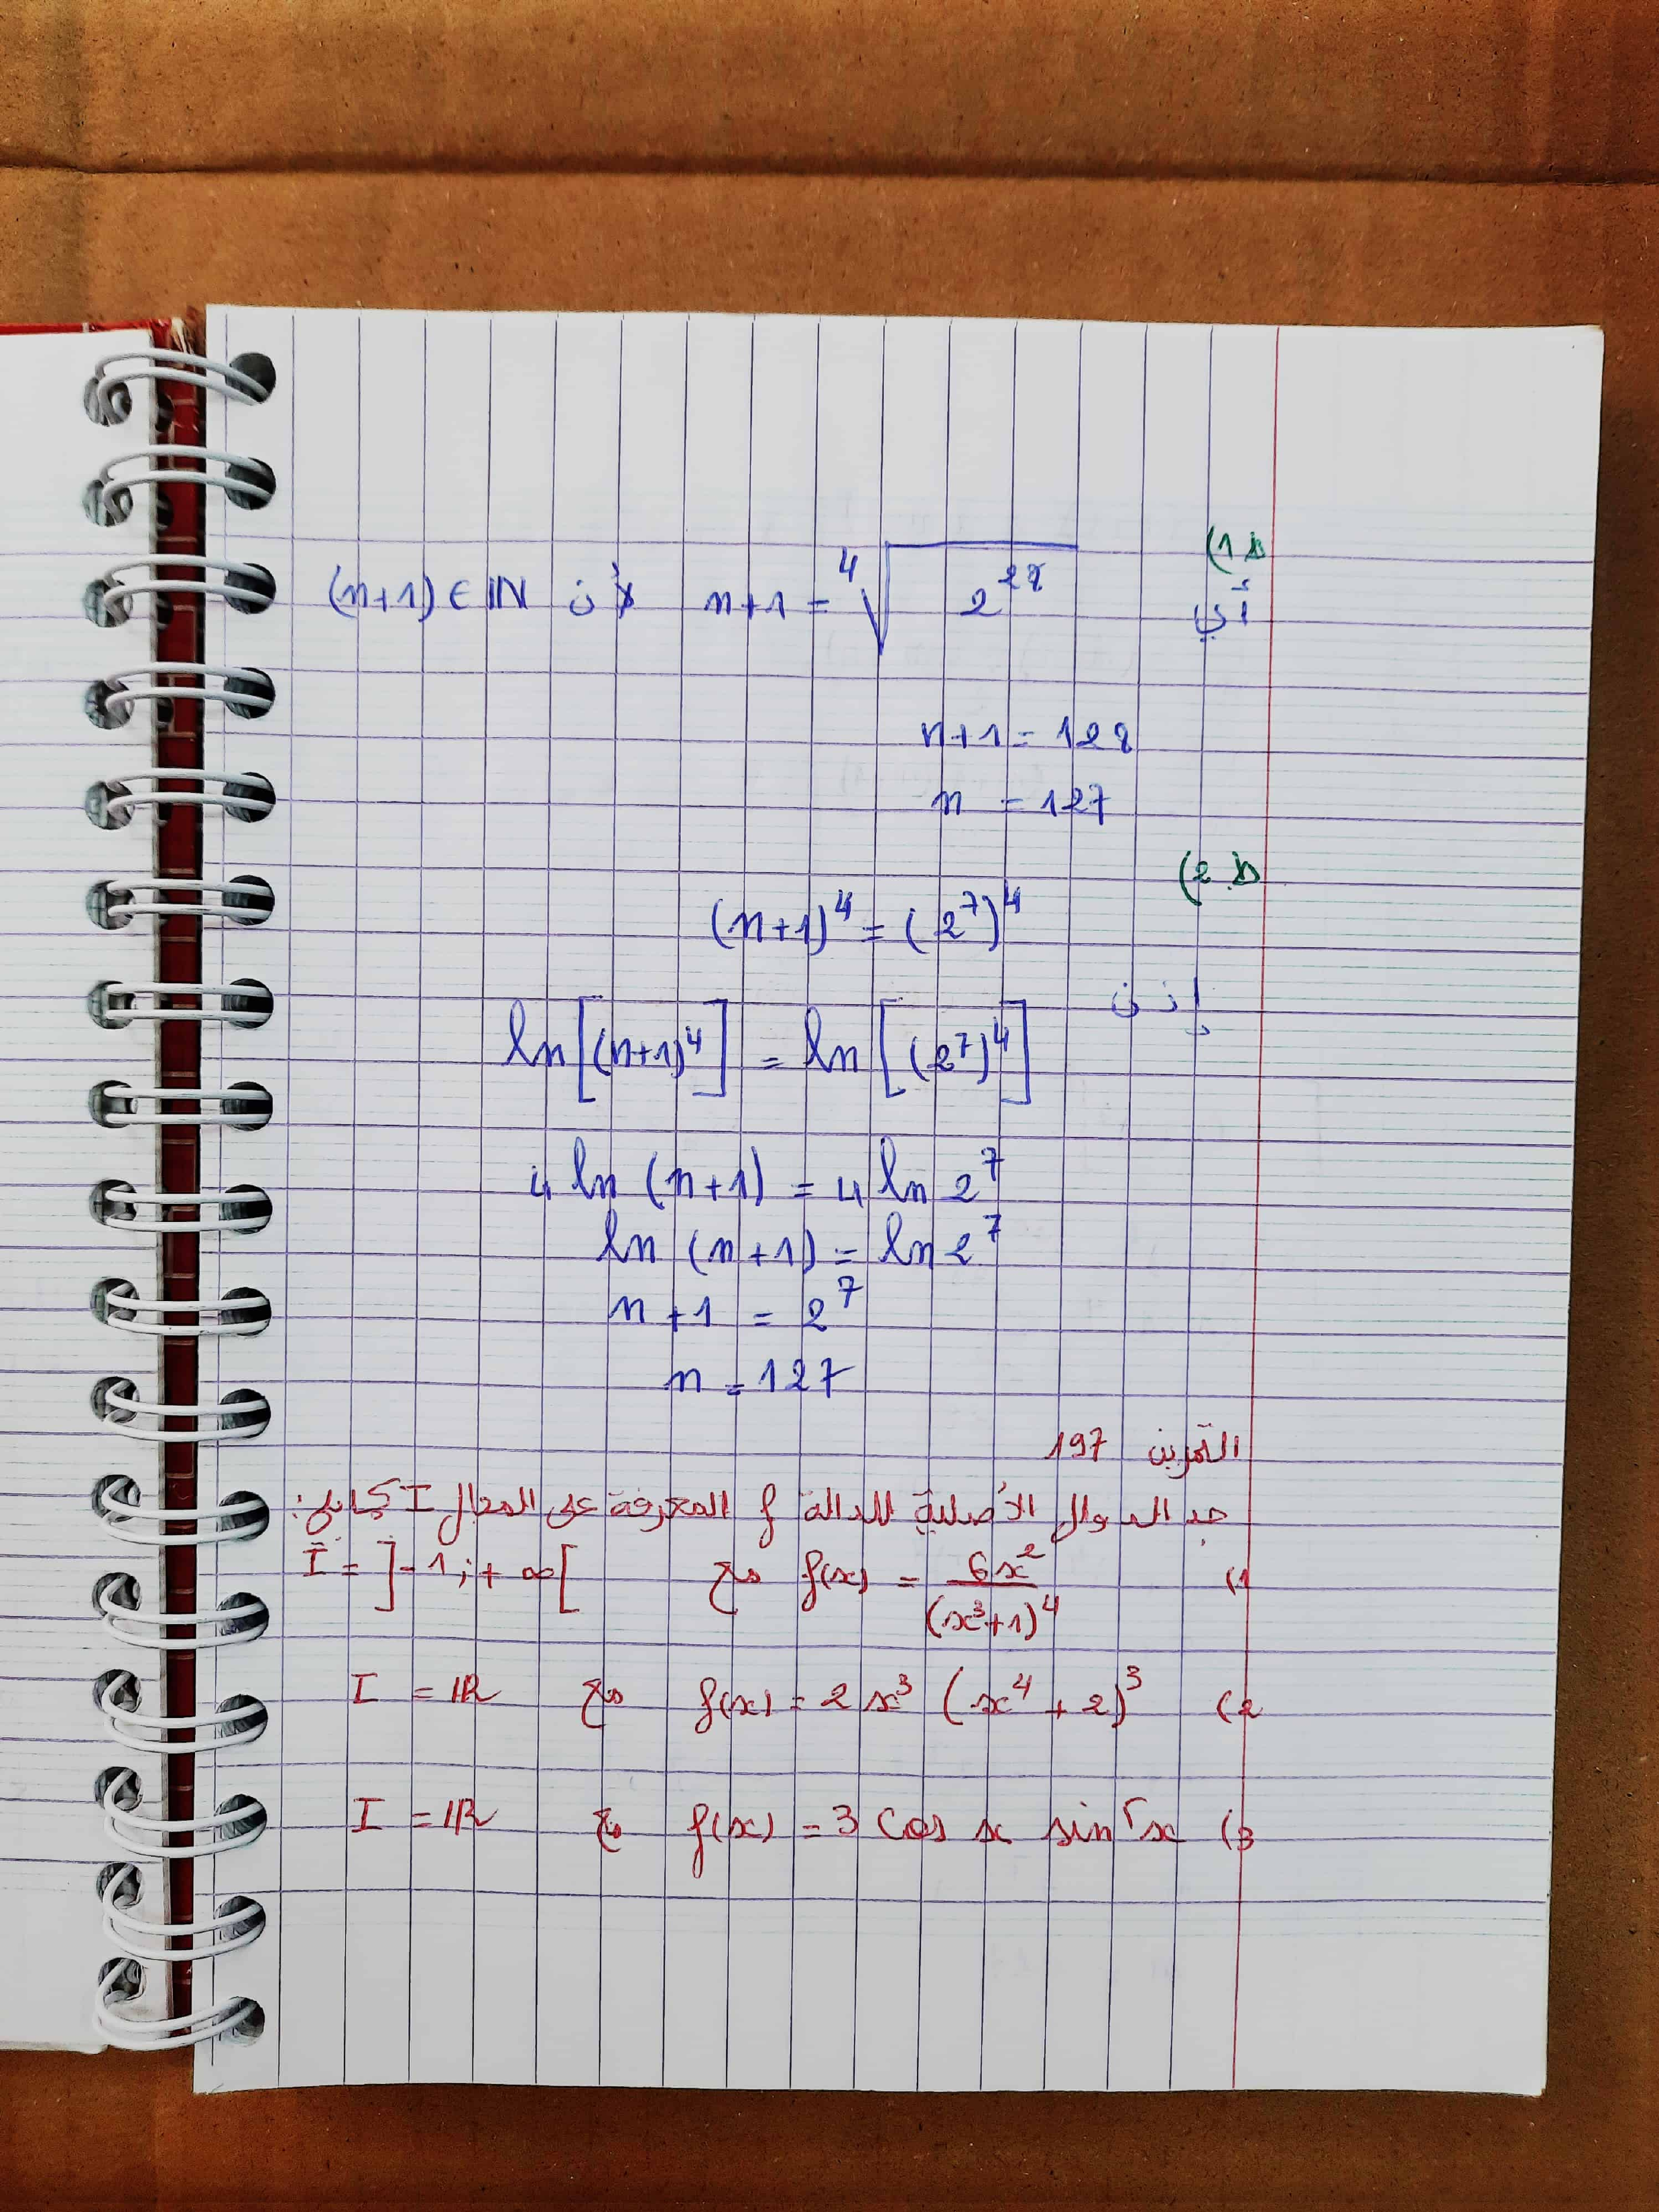 ط 1)
أي n+1 = ⁴√(2²⁸) لأن (n+1) ∈ ℕ
n+1 = 128
n = 127
ط 2)
(n+1)⁴ = (2⁷)⁴
إذن
ln[(n+1)⁴] = ln[(2⁷)⁴]
4 ln (n+1) = 4 ln 2⁷
ln (n+1) = ln 2⁷
n+1 = 2⁷
n = 127
التمرين 197
جد الدوال الأصلية للدالة f المعرفة على المجال I كمايلي:
1) f(x) = 6x²/(x³+1)⁴ مع I = ]-1;+∞[
2) f(x) = 2x³ (x⁴+2)³ مع I = ℝ
3) f(x) = 3 cos x sin⁵x مع I = ℝ